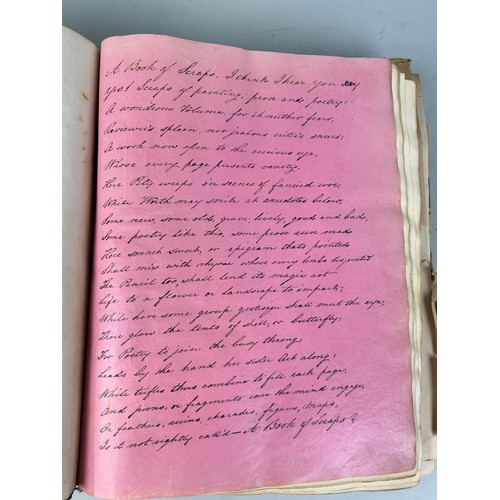 A Book of Scraps, I think I hear you say
yes! Scraps of painting, prose and poetry:
A wonderous Volume, for it neither fears,
Reviewer's spleen, nor jealous critic's sneers;
A work now open to the curious eye,
Whose every page presents variety.
Here Pity weeps o'er scenes of fancied woe,
While Worth may smile at anecdotes below,
Some new, some olds, grave, lively, good and bad,
Some poetry like this, some prose run mad
Here sonnets sweet, or epigram that's pointed
Shall mix with rhyme whose every limbs disjointed
The Pencil too, shall lend its magic art
Life to a flower or landscape to impart;
While here some group grotesque shall meet the eye,
There glow the tents of shell, or butterfly:
For Poetry to join the busy throng
Leads by the hand her sister Art along;
While trifles thus combine to fill each page,
And poems, or fragments can the mind engage,
Or feathers, ruins, charades, figures, Maps,
Is it not rightly call'd — A Book of Scraps?